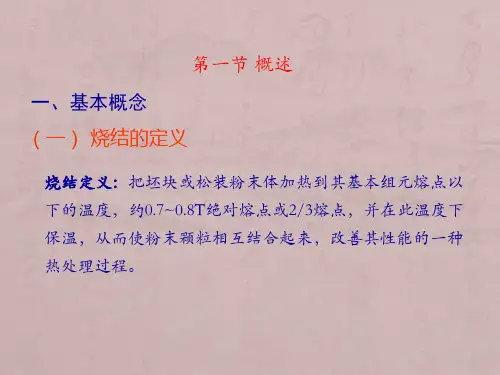 第一节 概述
一、基本概念
(一) 烧结的定义
烧结定义：把坯块或松装粉末体加热到其基本组元熔点以
下的温度，约0.7~0.8T绝对熔点或2/3熔点，并在此温度下
保温，从而使粉末颗粒相互结合起来，改善其性能的一种
热处理过程。